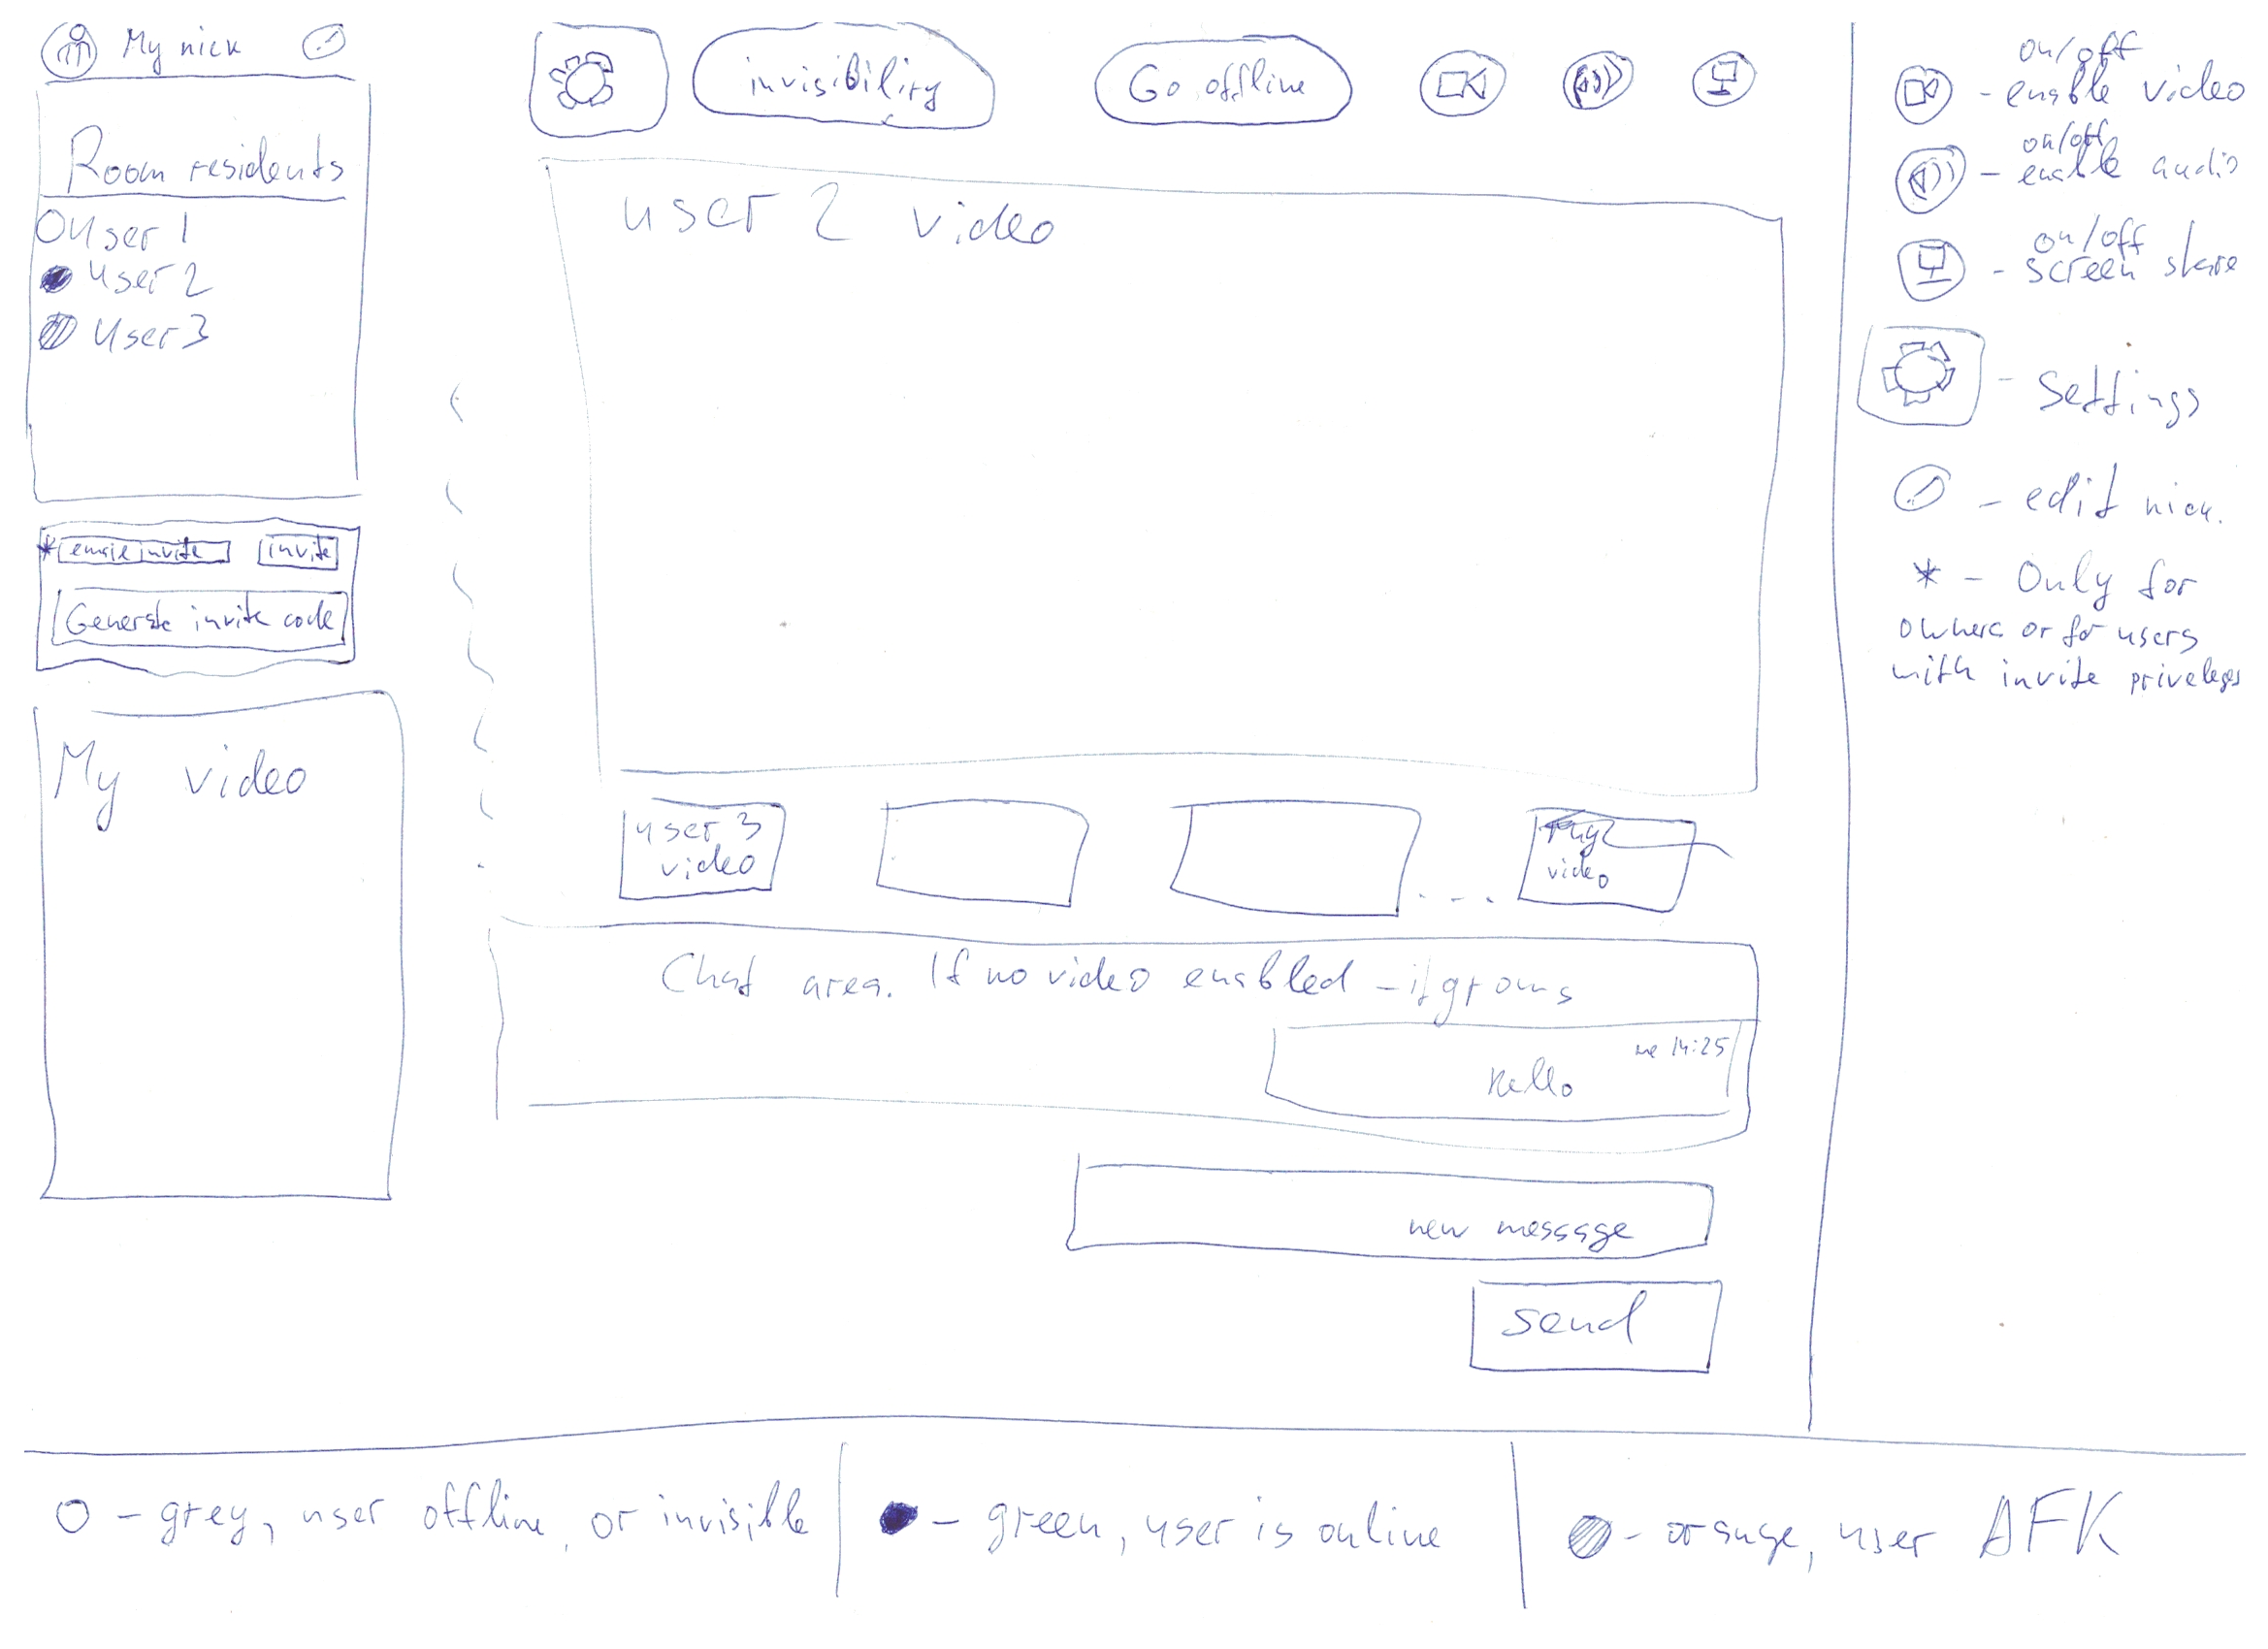 My nick
Room residents
user 1
user 2
user 3
* email invite
invite
Generate invite code
My video
invisibility
Go offline
user 2 video
user 3
video
my
video
...
Chat area. If no video enabled - it grows
me 14:25
hello
new message
send
on/off
- enable video
on/off
- enable audio
on/off
- screen share
- Settings
- edit nick.
* - Only for
owners or for users
with invite priveleges
- grey, user offline, or invisible
- green, user is online
- orange, user AFK